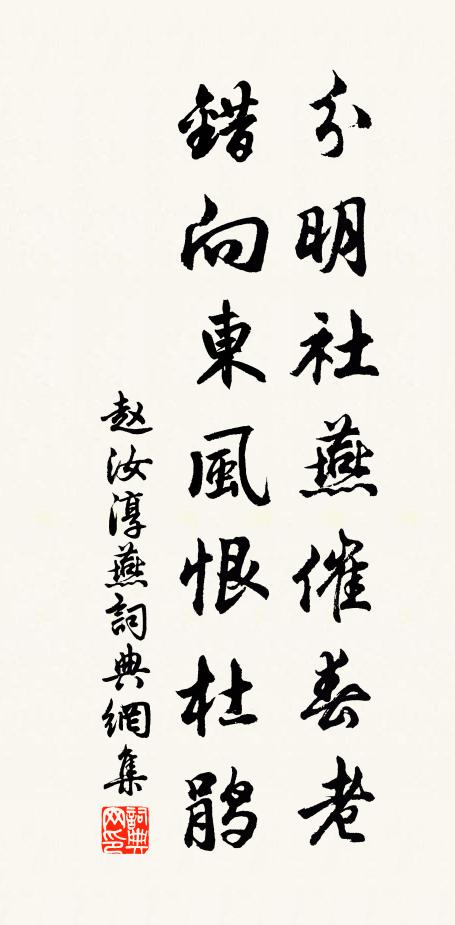 分明社燕催春老
錯向東風恨杜鹃
赵汝淳燕詞典網集
詞典网印